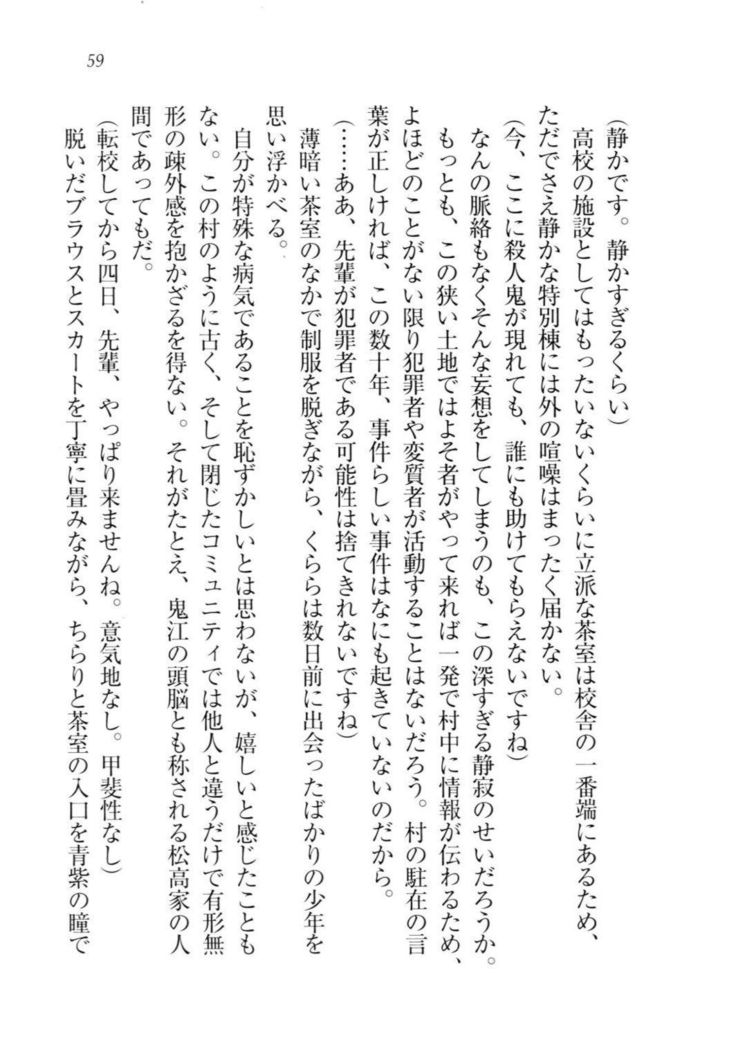 59
(静かです。静かすぎるくらい)
高校の施設としてはもったいないくらいに立派な茶室は校舎の一番端にあるため、
ただでさえ静かな特別棟には外の喧噪はまったく届かない。
(今、ここに殺人鬼が現れても、誰にも助けてもらえないですね)
なんの脈絡もなくそんな妄想をしてしまうのも、この深すぎる静寂のせいだろうか。
もっとも、この狭い土地ではよそ者がやって来れば一発で村中に情報が伝わるため、
よほどのことがない限り犯罪者や変質者が活動することはないだろう。村の駐在の言
葉が正しければ、この数十年、事件らしい事件はなにも起きていないのだから。
(……ああ、先輩が犯罪者である可能性は捨てきれないですね)
薄暗い茶室のなかで制服を脱ぎながら、くららは数日前に出会ったばかりの少年を
思い浮かべる。
自分が特殊な病気であることを恥ずかしいとは思わないが、嬉しいと感じたことも
ない。この村のように古く、そして閉じたコミュニティでは他人と違うだけで有形無
形の疎外感を抱かざるを得ない。それがたとえ、鬼江の頭脳とも称される松高家の人
間であってもだ。
(転校してから四日、先輩、やっぱり来ませんね。意気地なし。甲斐性なし)
脱いだブラウスとスカートを丁寧に畳みながら、ちらりと茶室の入口を青紫の瞳で